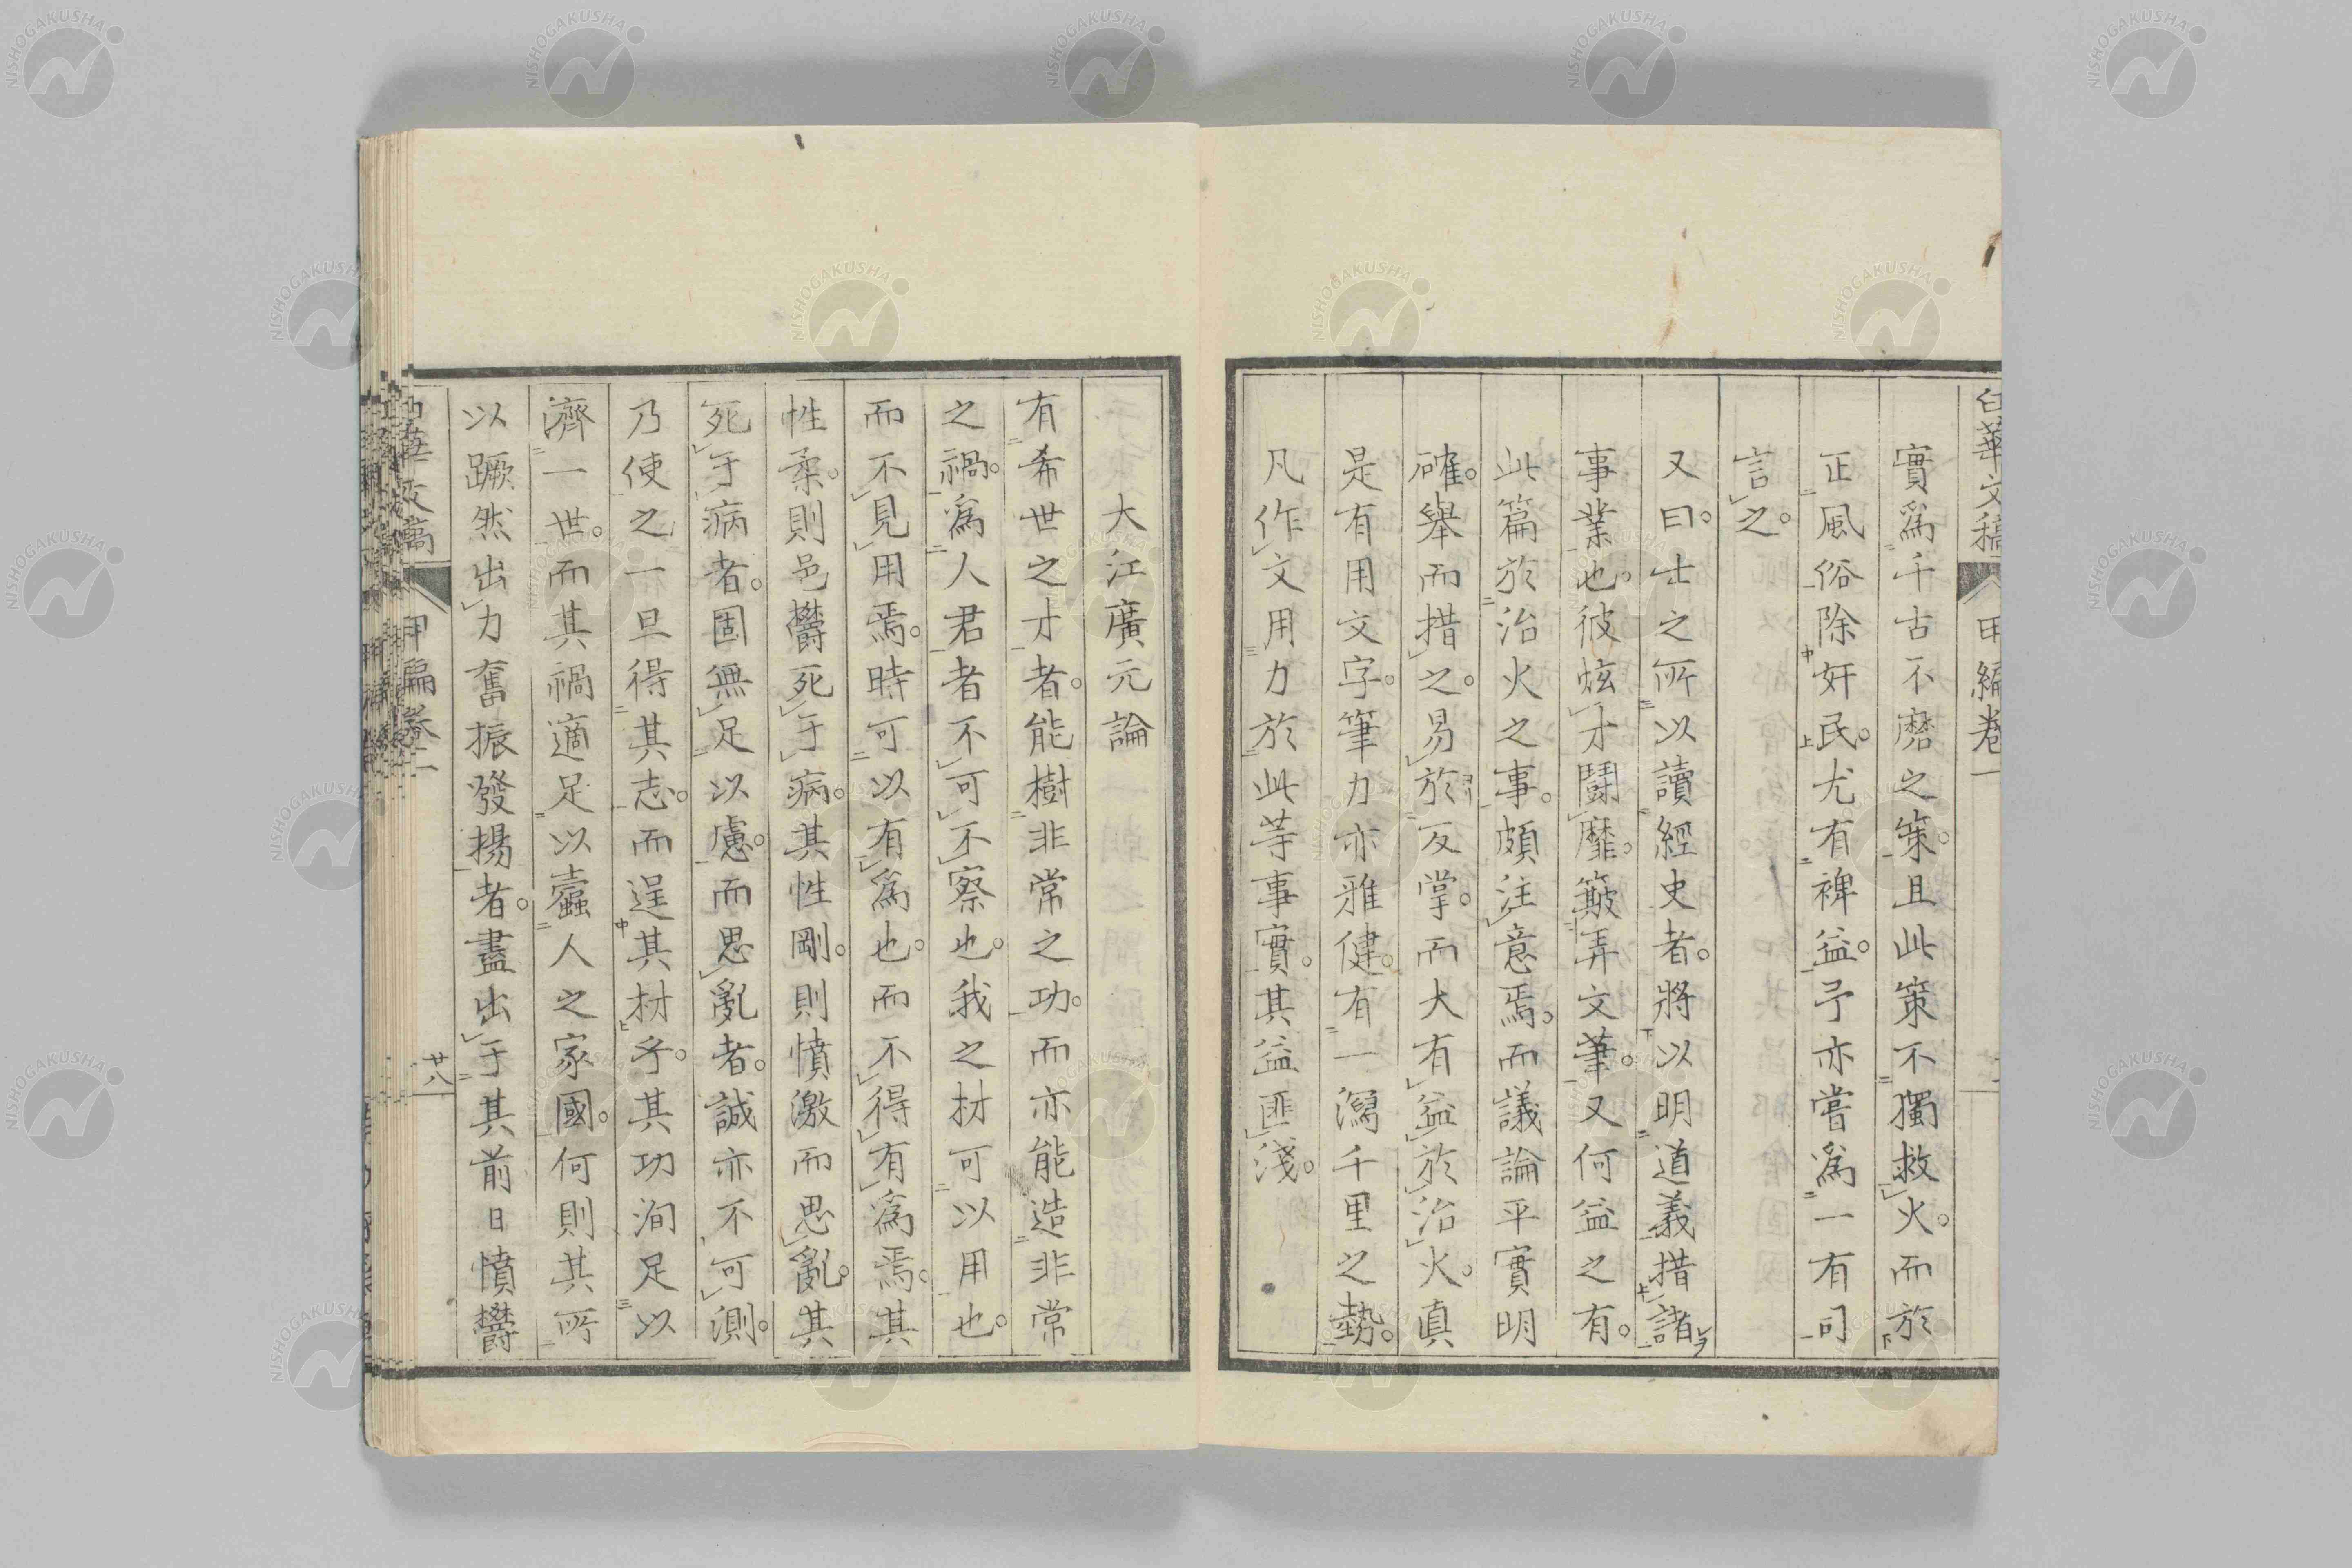 白華文稿 甲編卷一
實爲千古不磨之策。且此策不獨救火。而於
正風俗除奸民。尤有裨益。予亦嘗爲一有司
言之。
又曰。士之所以讀經史者。將以明道義措諸
事業也。彼炫才鬪靡。簸弄文筆。又何益之有。
此篇於治火之事。頗注意焉。而議論平實明
確。舉而措之。易於反掌。而大有益於治火。真
是有用文字。筆力亦雅健。有一瀉千里之勢。
凡作文用力於此等事實。其益匪淺。
大江廣元論
有希世之才者。能樹非常之功。而亦能造非常
之禍。爲人君者不可不察也。我之材可以用也。
而不見用焉。時可以有爲也。而不得有爲焉。其
性柔。則邑鬱死于病。其性剛。則憤激而思亂。其
死于病者。固無足以慮。而思亂者。誠亦不可測。
乃使之一旦得其志。而逞其材乎。其功洵足以
濟一世。而其禍適足以蠹人之家國。何則其所
以蹶然出力奮振發揚者。盡出于其前日憤鬱
白華文稿 甲編卷一 廿八
NISHOGAKUSHA